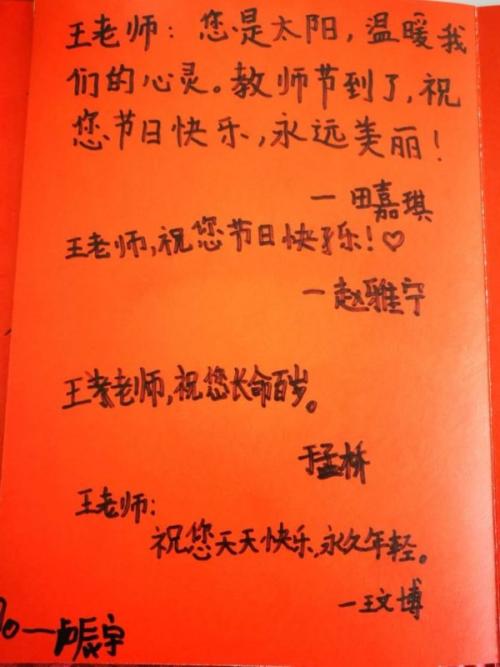 王老师：您是太阳，温暖我
们的心灵。教师节到了，祝
您节日快乐，永远美丽！
一田嘉琪
王老师，祝您节日快乐！♡
一赵雅宁
王老师，祝您长命百岁。
于孟桥
王老师：
祝您天天快乐，永久年轻。
一王文博
一卢辰宇